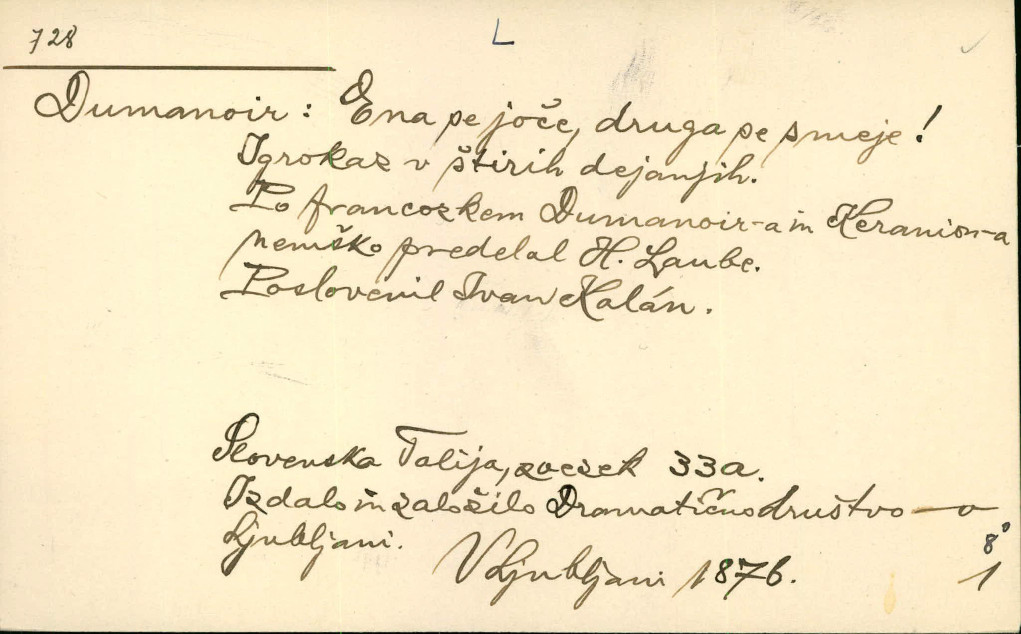 728
L
Dumanoir: Ena pe joče, druga pe smeje!
Igrokaz v štirih dejanjih.
Po francozkem Dumanoir-a in Keranion-a
nemško predelal H. Laube.
Poslovenil Ivan Kalán.
Slovenska Talija, zvezek 33a.
Izdalo in založilo Dramatično društvo v
Ljubljani.
V Ljubljani 1876.
8°
1